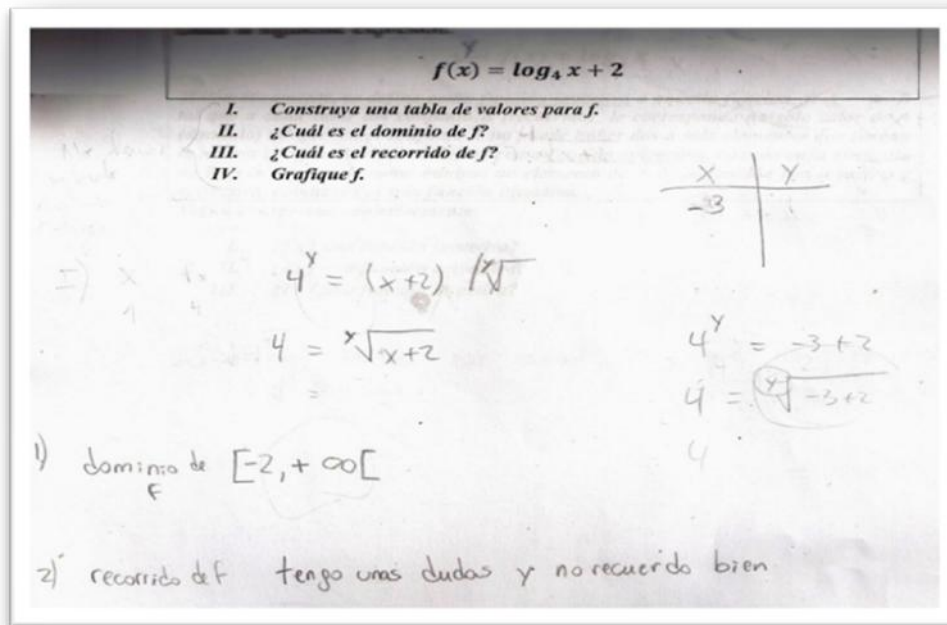 f(x) = log₄ x + 2
y
I. Construya una tabla de valores para f.
II. ¿Cuál es el dominio de f?
III. ¿Cuál es el recorrido de f?
IV. Grafique f.
x | y
-3 |
4^y = (x+2) /^y√
4 = ^y√(x+2)
=
4^y = -3+2
4 = ^y√(-3+2)
4
1) dominio de f [-2, +∞[
2) recorrido de f tengo unas dudas y no recuerdo bien